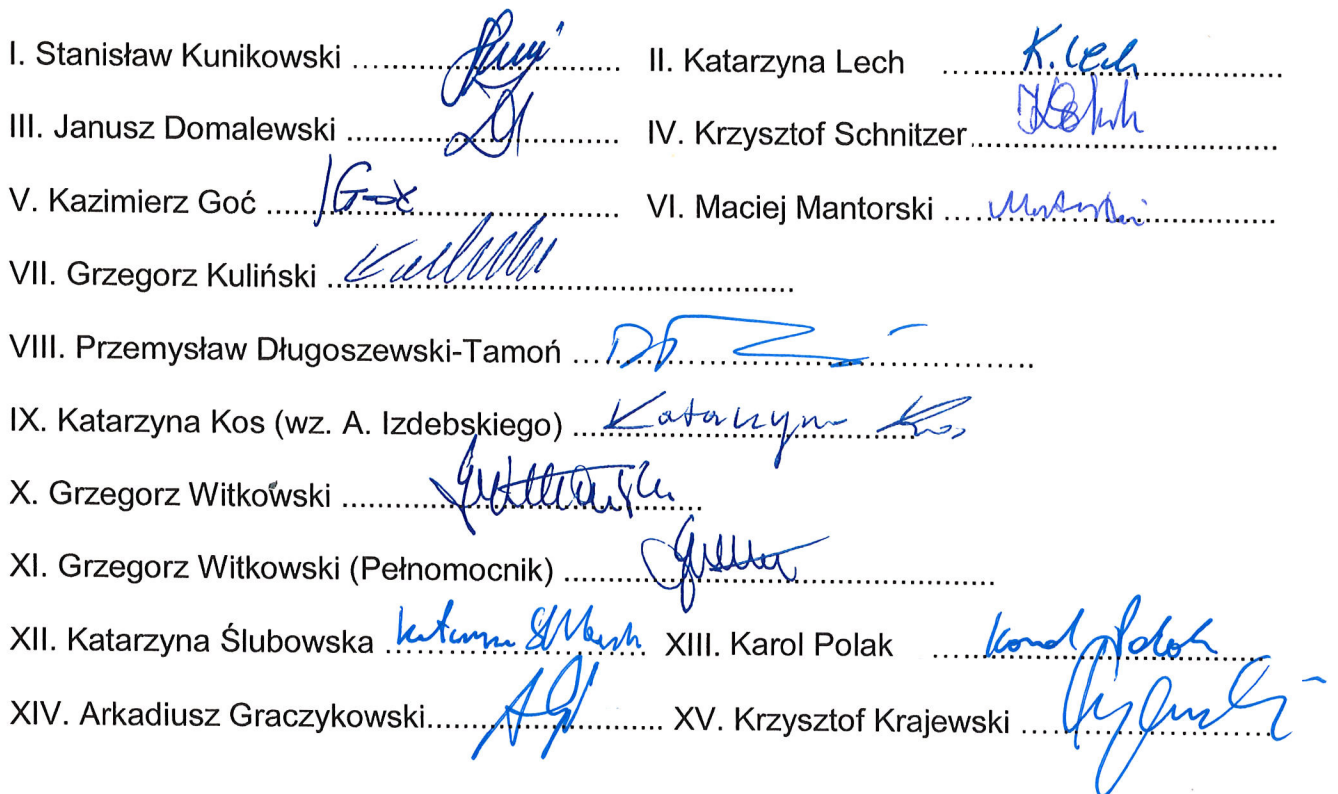 I. Stanisław Kunikowski ........................ II. Katarzyna Lech ...K. Lech..................
III. Janusz Domalewski ........................ IV. Krzysztof Schnitzer........................
V. Kazimierz Goć .....Goć................... VI. Maciej Mantorski ........................
VII. Grzegorz Kuliński ........................
VIII. Przemysław Długoszewski-Tamoń ........................
IX. Katarzyna Kos (wz. A. Izdebskiego) ....Katarzyna Kos....
X. Grzegorz Witkowski ........................
XI. Grzegorz Witkowski (Pełnomocnik) ........................
XII. Katarzyna Ślubowska ........................ XIII. Karol Polak ....Karol Polak....
XIV. Arkadiusz Graczykowski........................ XV. Krzysztof Krajewski ........................